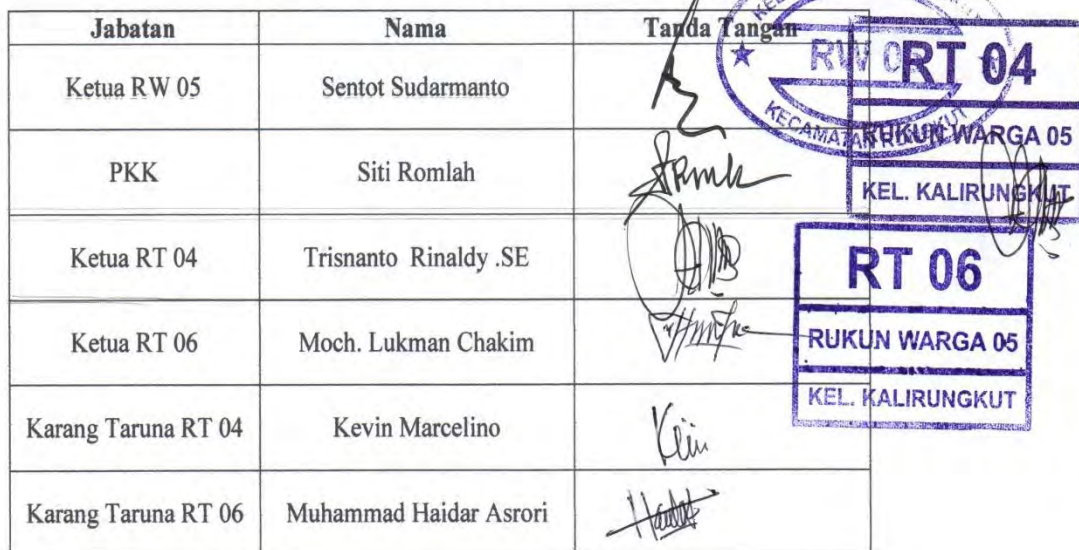 Jabatan Nama Tanda Tangan
Ketua RW 05 Sentot Sudarmanto
PKK Siti Romlah
Ketua RT 04 Trisnanto Rinaldy .SE
Ketua RT 06 Moch. Lukman Chakim
Karang Taruna RT 04 Kevin Marcelino
Karang Taruna RT 06 Muhammad Haidar Asrori
RW 0
KECAMATAN
RT 04
RUKUN WARGA 05
KEL. KALIRUNGKUT
RT 06
RUKUN WARGA 05
KEL. KALIRUNGKUT